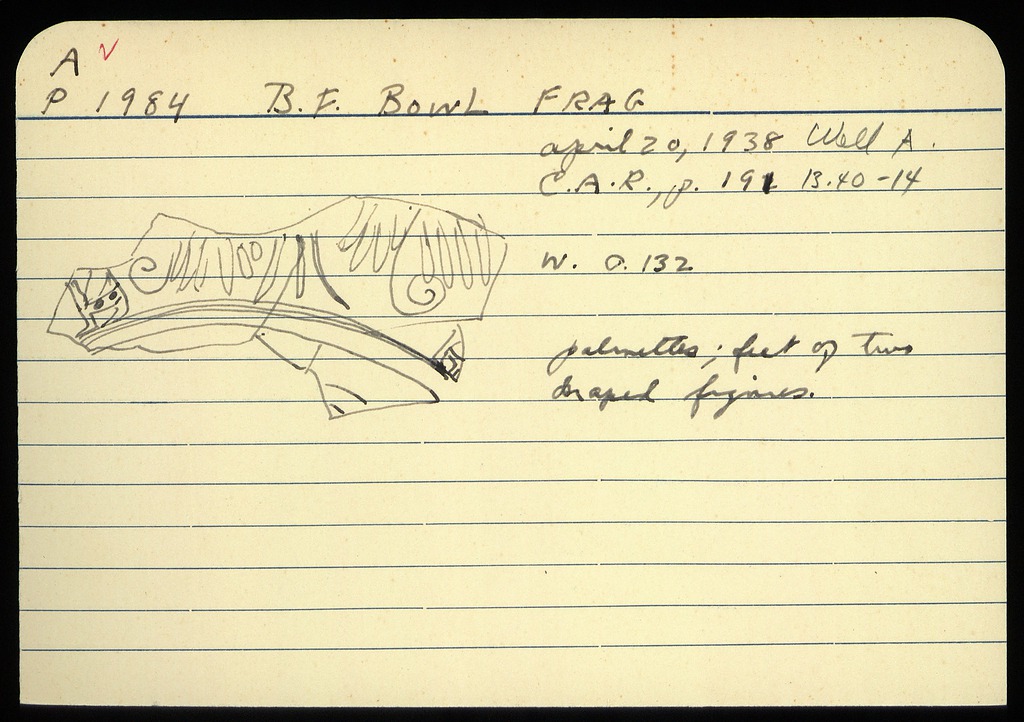 A ✓
P 1984 B.F. BOWL FRAG
april 20, 1938 Well A.
C.A.R., p. 191 13.40-14
W. 0.132
palmettes; feet of two
draped figures.